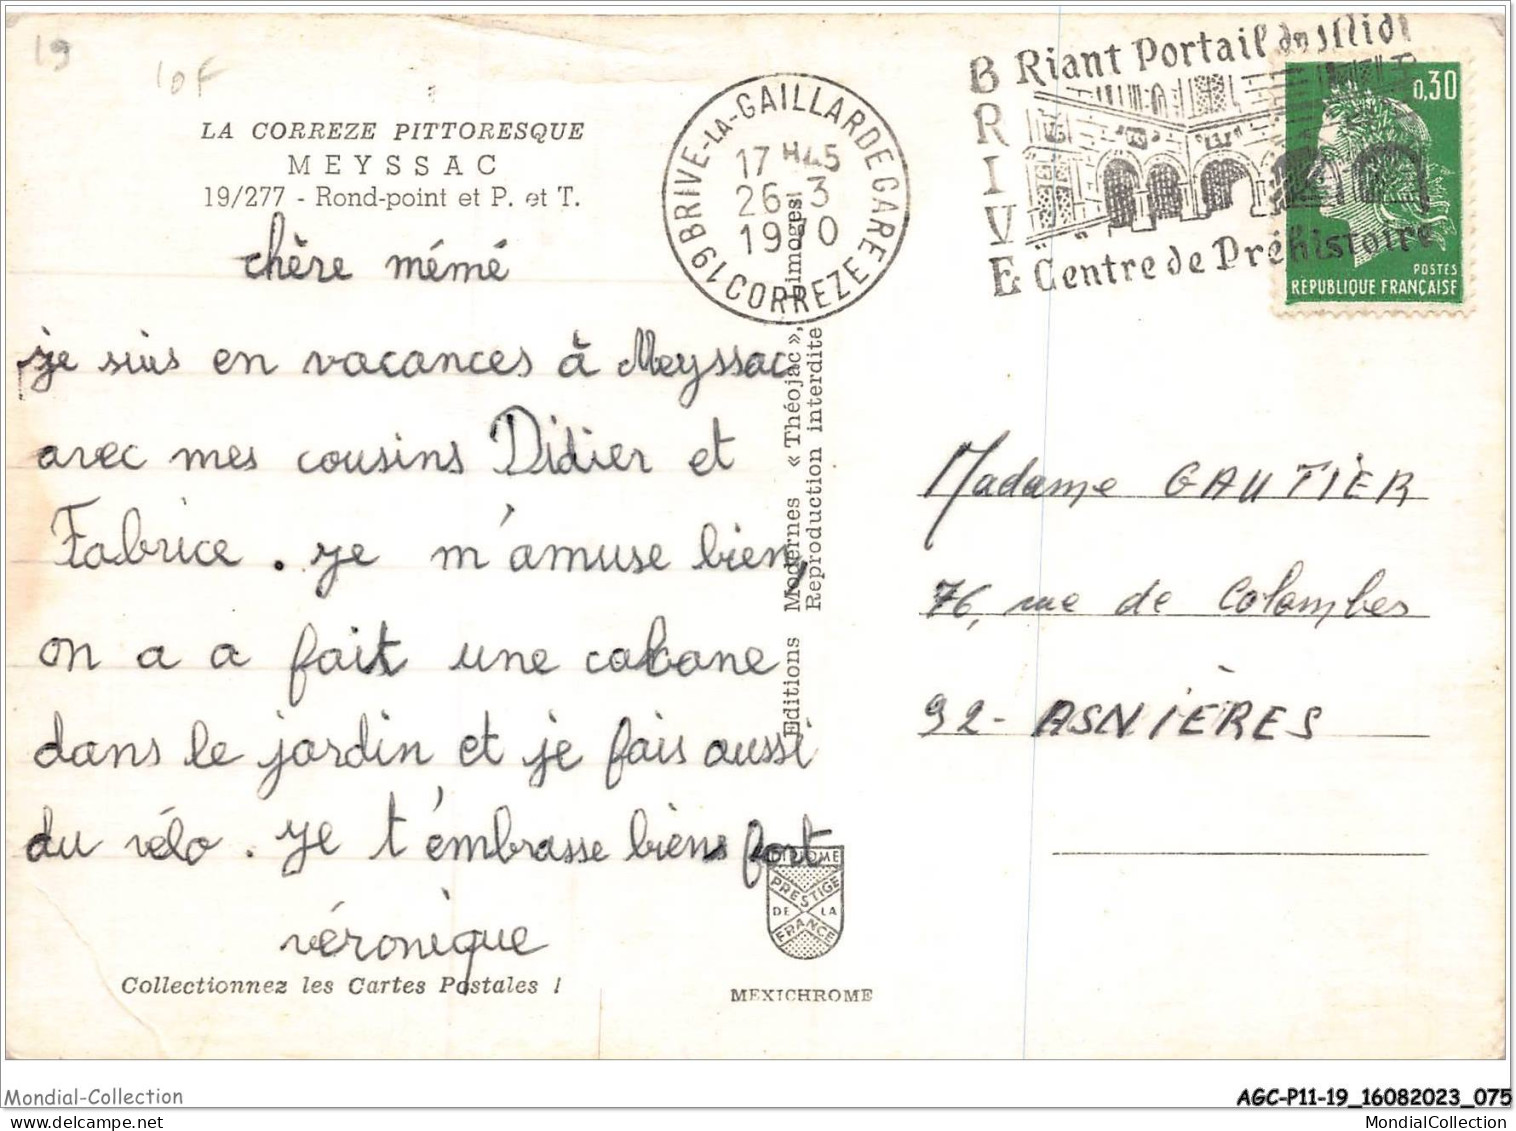 19
10F
LA CORREZE PITTORESQUE
MEYSSAC
19/277 - Rond-point et P. et T.
chère mémé
je suis en vacances à Meyssac
avec mes cousins Didier et
Fabrice. je m'amuse bien,
on a a fait une cabane
dans le jardin et je fais aussi
du vélo. Je t'émbrasse biens fort
véronique
Collectionnez les Cartes Postales !
19 BRIVE-LA-GAILLARDE GARE CORREZE
17 H45
26-3
1970
BRIVE
Riant Portail du Midi
Centre de Préhistoire
0,30
POSTES
RÉPUBLIQUE FRANÇAISE
Editions Modernes « Théojac », Limoges
Reproduction interdite
DIPLOME
PRESTIGE
DE LA
FRANCE
MEXICHROME
Madame GAUTIER
76, rue de Colombes
92 - ASNIÈRES
Mondial-Collection
AGC-P11-19_16082023_075
MondialCollection